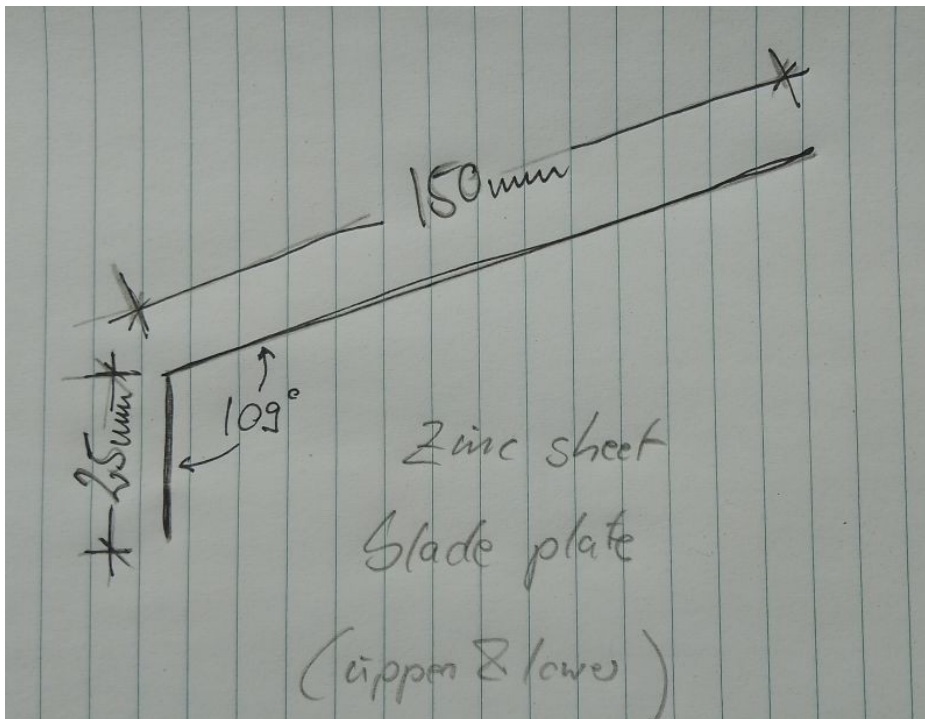 150mm
25mm
109°
Zinc sheet
blade plate
(upper & lower)